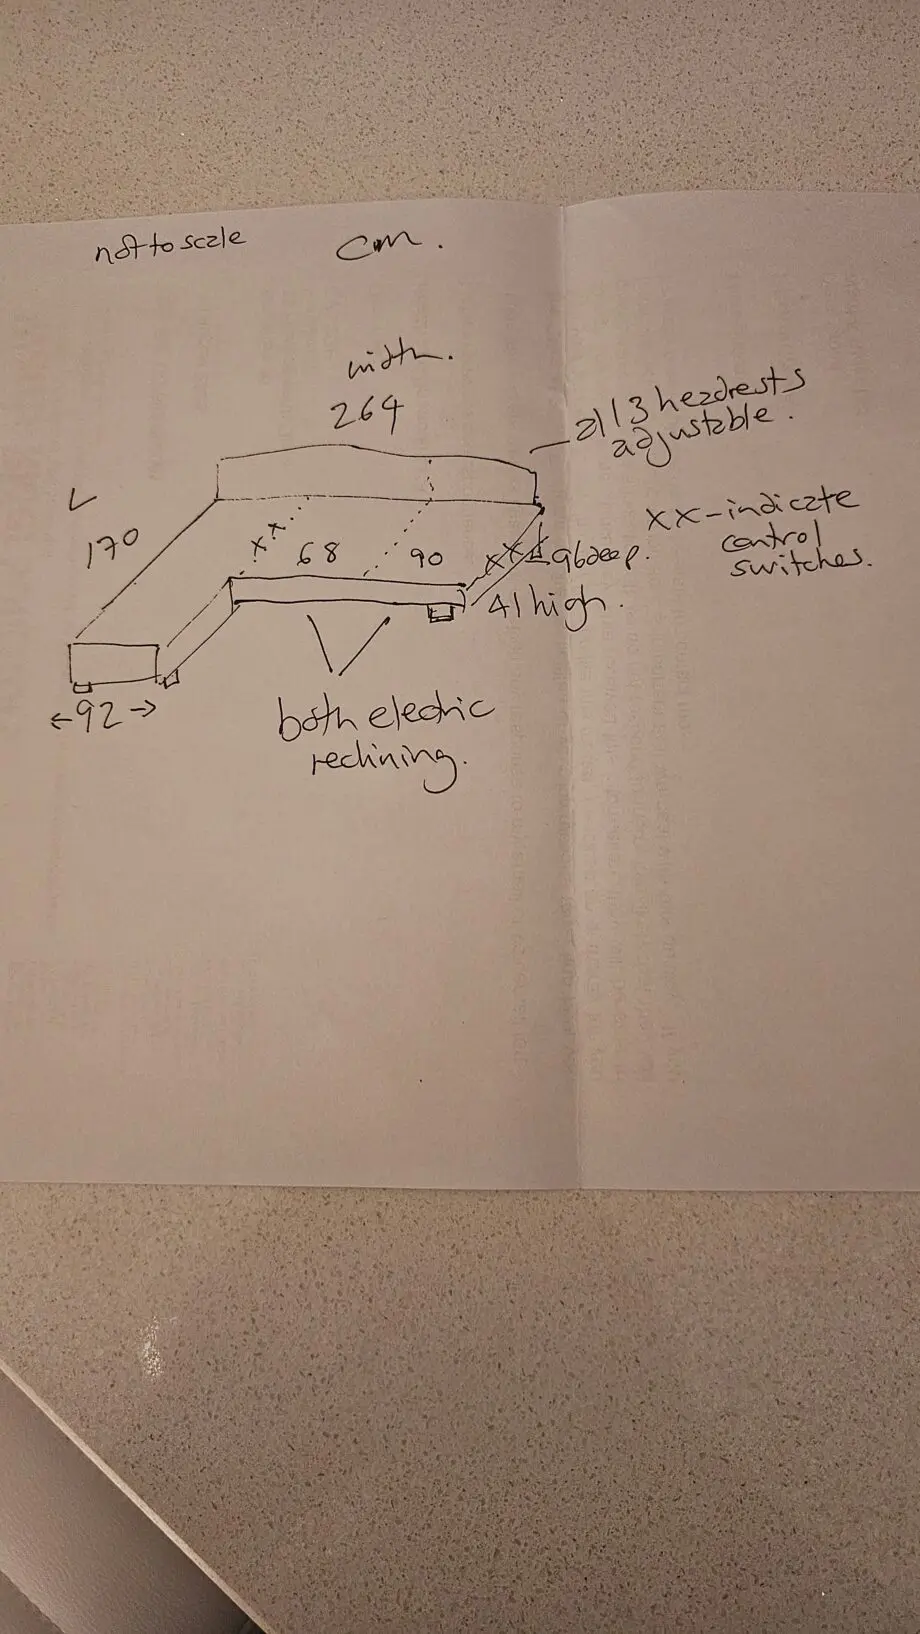 not to scale
cm.
width.
264
all 3 headrests
adjustable.
L
170
xx
68
90
xxx
96 deep.
41 high.
xx - indicate
control
switches.
←92→
both electric
reclining.